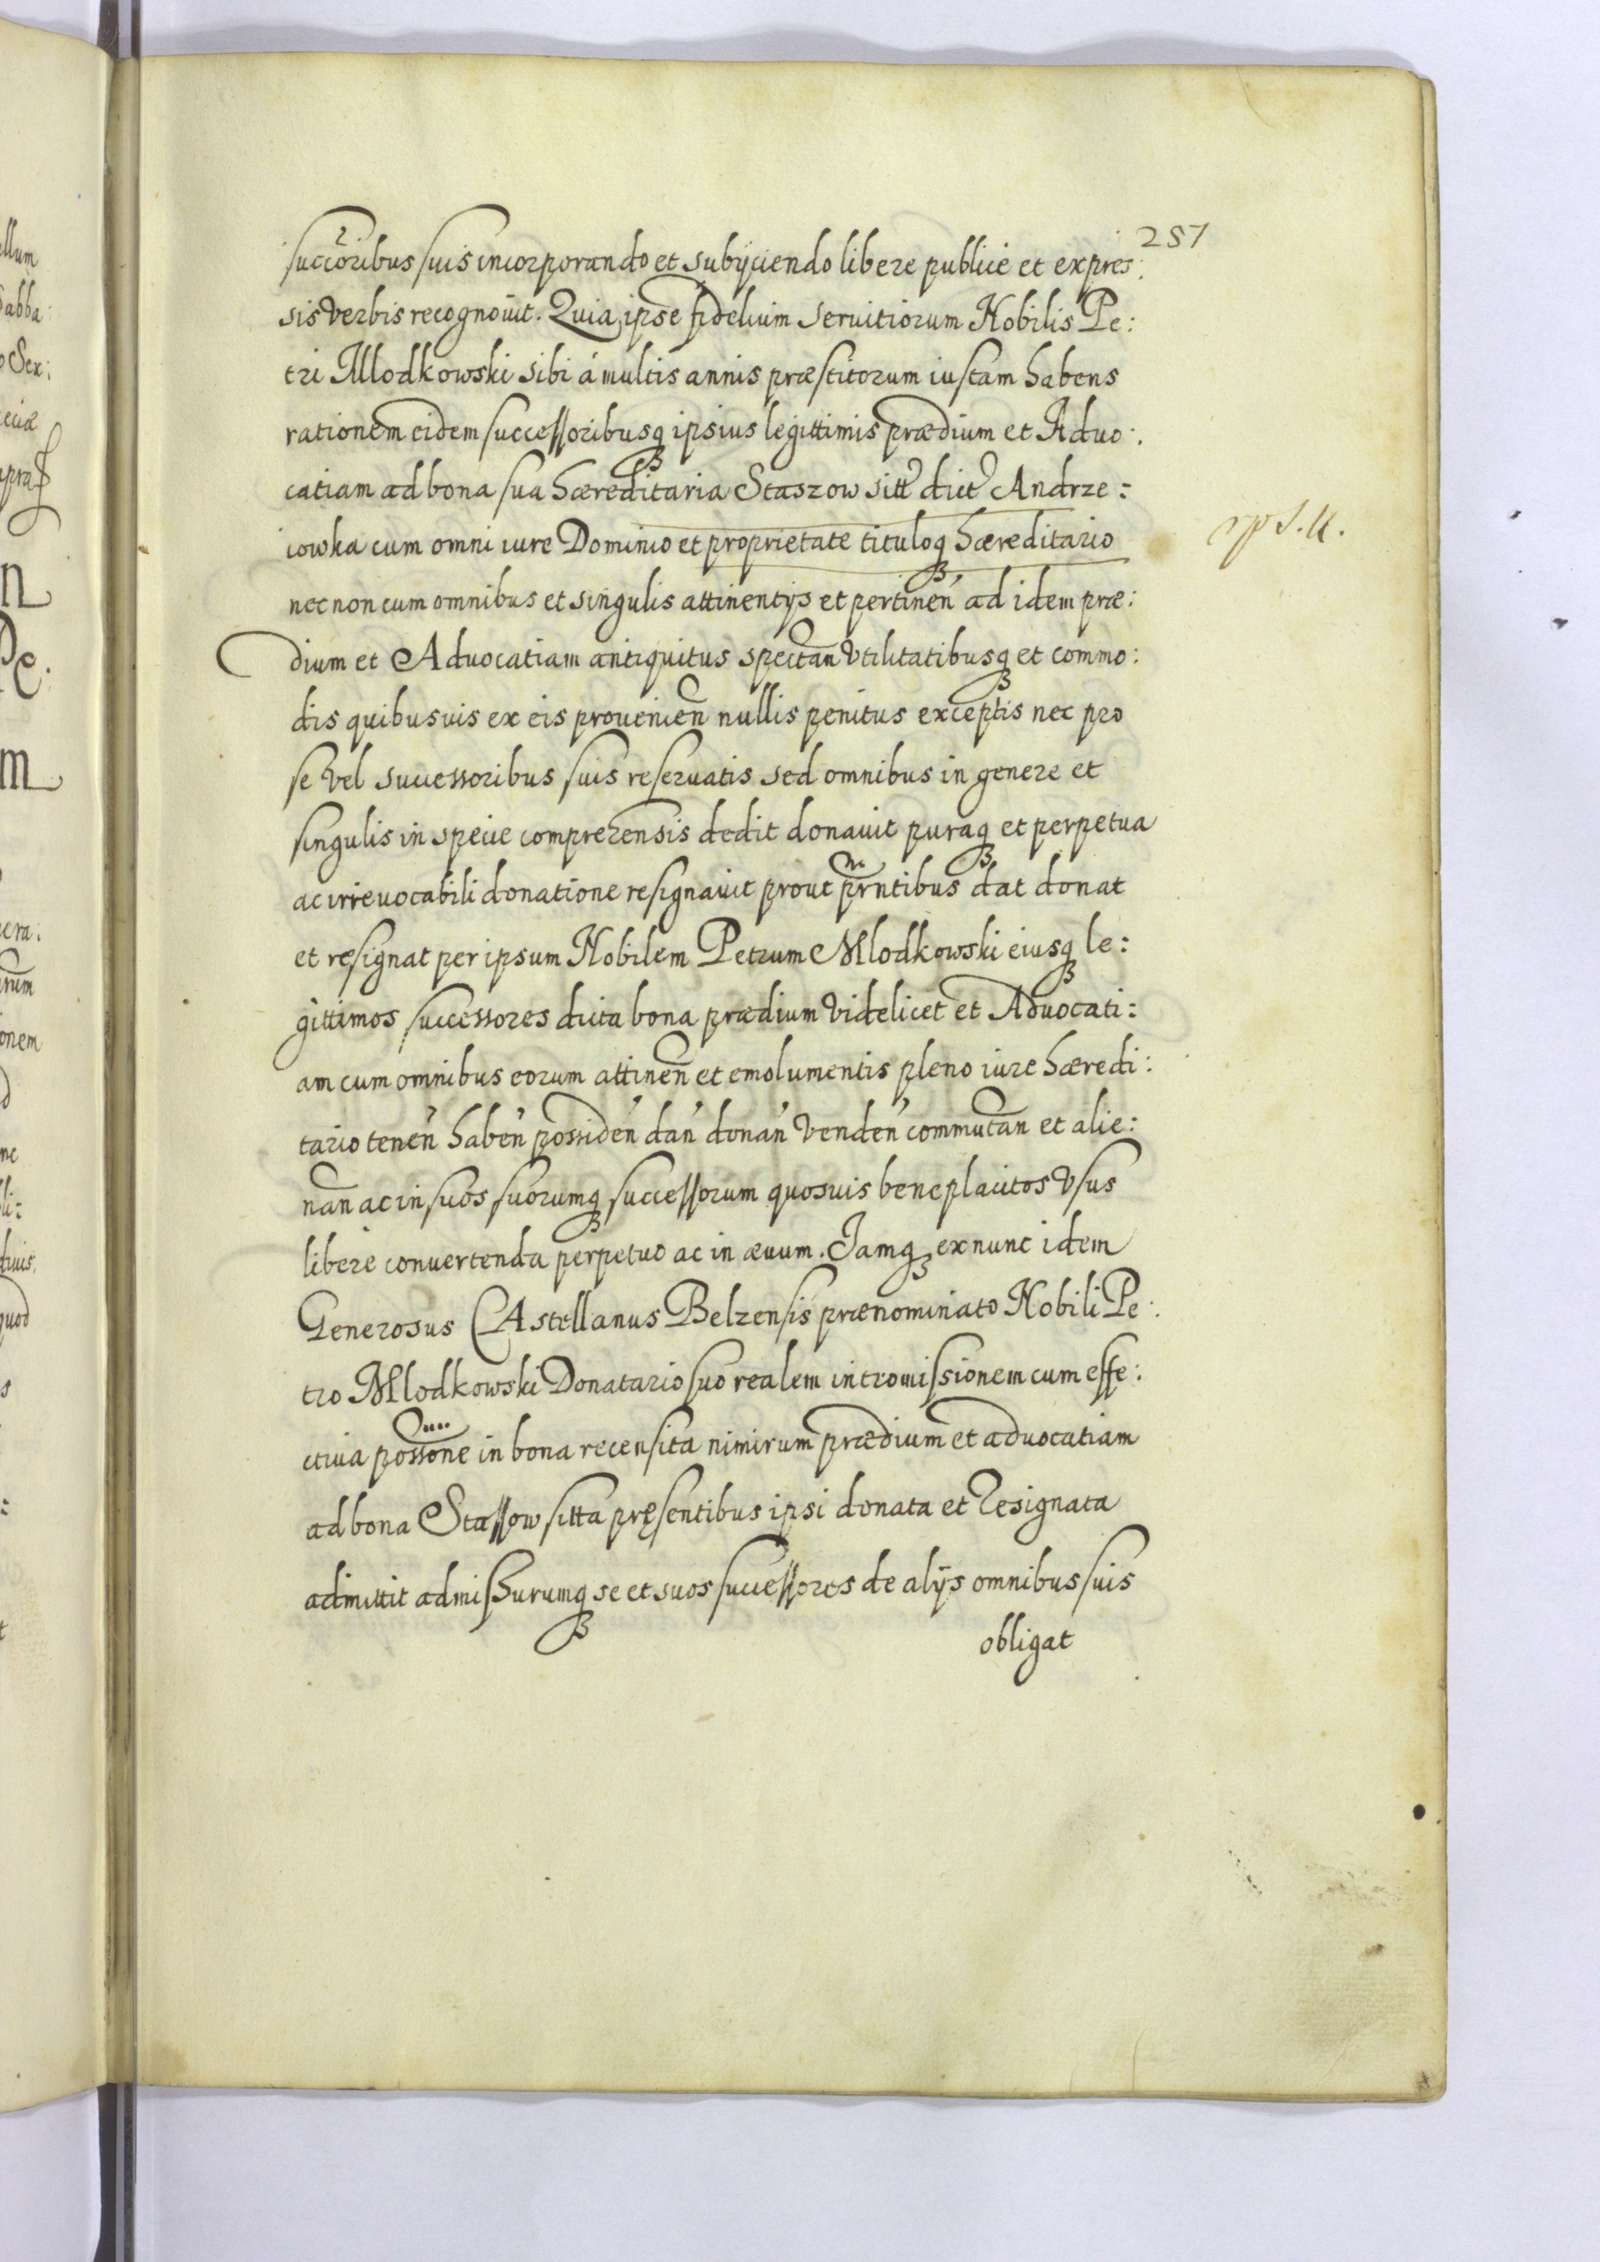 257
succoribus suis incorporando et subijciendo libere publicè et expres:
sis verbis recognouit. Quia ipse fidelium seruitiorum Nobilis Pe:
tri Mlodkowski sibi á multis annis præstitorum iustam habens
rationem eidem successoribusq3 ipsius legittimis prædium et Aduo:
catiam ad bona sua hæreditaria Staszow sitt dict Andrze:
iowka cum omni iure Dominio et proprietate tituloq3 hæreditario
nec non cum omnibus et singulis attinentijs et pertinen ad idem præ:
dium et Aduocatiam antiquitus spectan vtilitatibusq3 et commo:
dis quibusuis ex eis prouenien nullis penitus exceptis nec pro
se vel successoribus suis reseruatis sed omnibus in genere et
singulis in specie comprehensis dedit donauit puraq3 et perpetua
ac irreuocabili donatione resignauit prout prntibus dat donat
et resignat per ipsum Nobilem Petrum Mlodkowski eiusq3 le:
gittimos successores dicta bona prædium videlicet et Aduocati:
am cum omnibus eorum attinen et emolumentis pleno iure hæredi:
tario tenen haben possiden dan donan venden commutan et alie:
nan ac in suos suorumq3 successorum quosuis beneplacitos vsus
libere conuertenda perpetuo ac in æuum. Jamq3 ex nunc idem
Generosus CAstellanus Belzensis prænominato Nobili Pe:
tro Mlodkowski Donatario suo realem intromissionem cum effe:
ctiua possone in bona recensita nimirum prædium et aduocatiam
ad bona Stassow sitta pręsentibus ipsi donata et resignata
admittit admissurumq3 se et suos successores de alijs omnibus suis
obligat